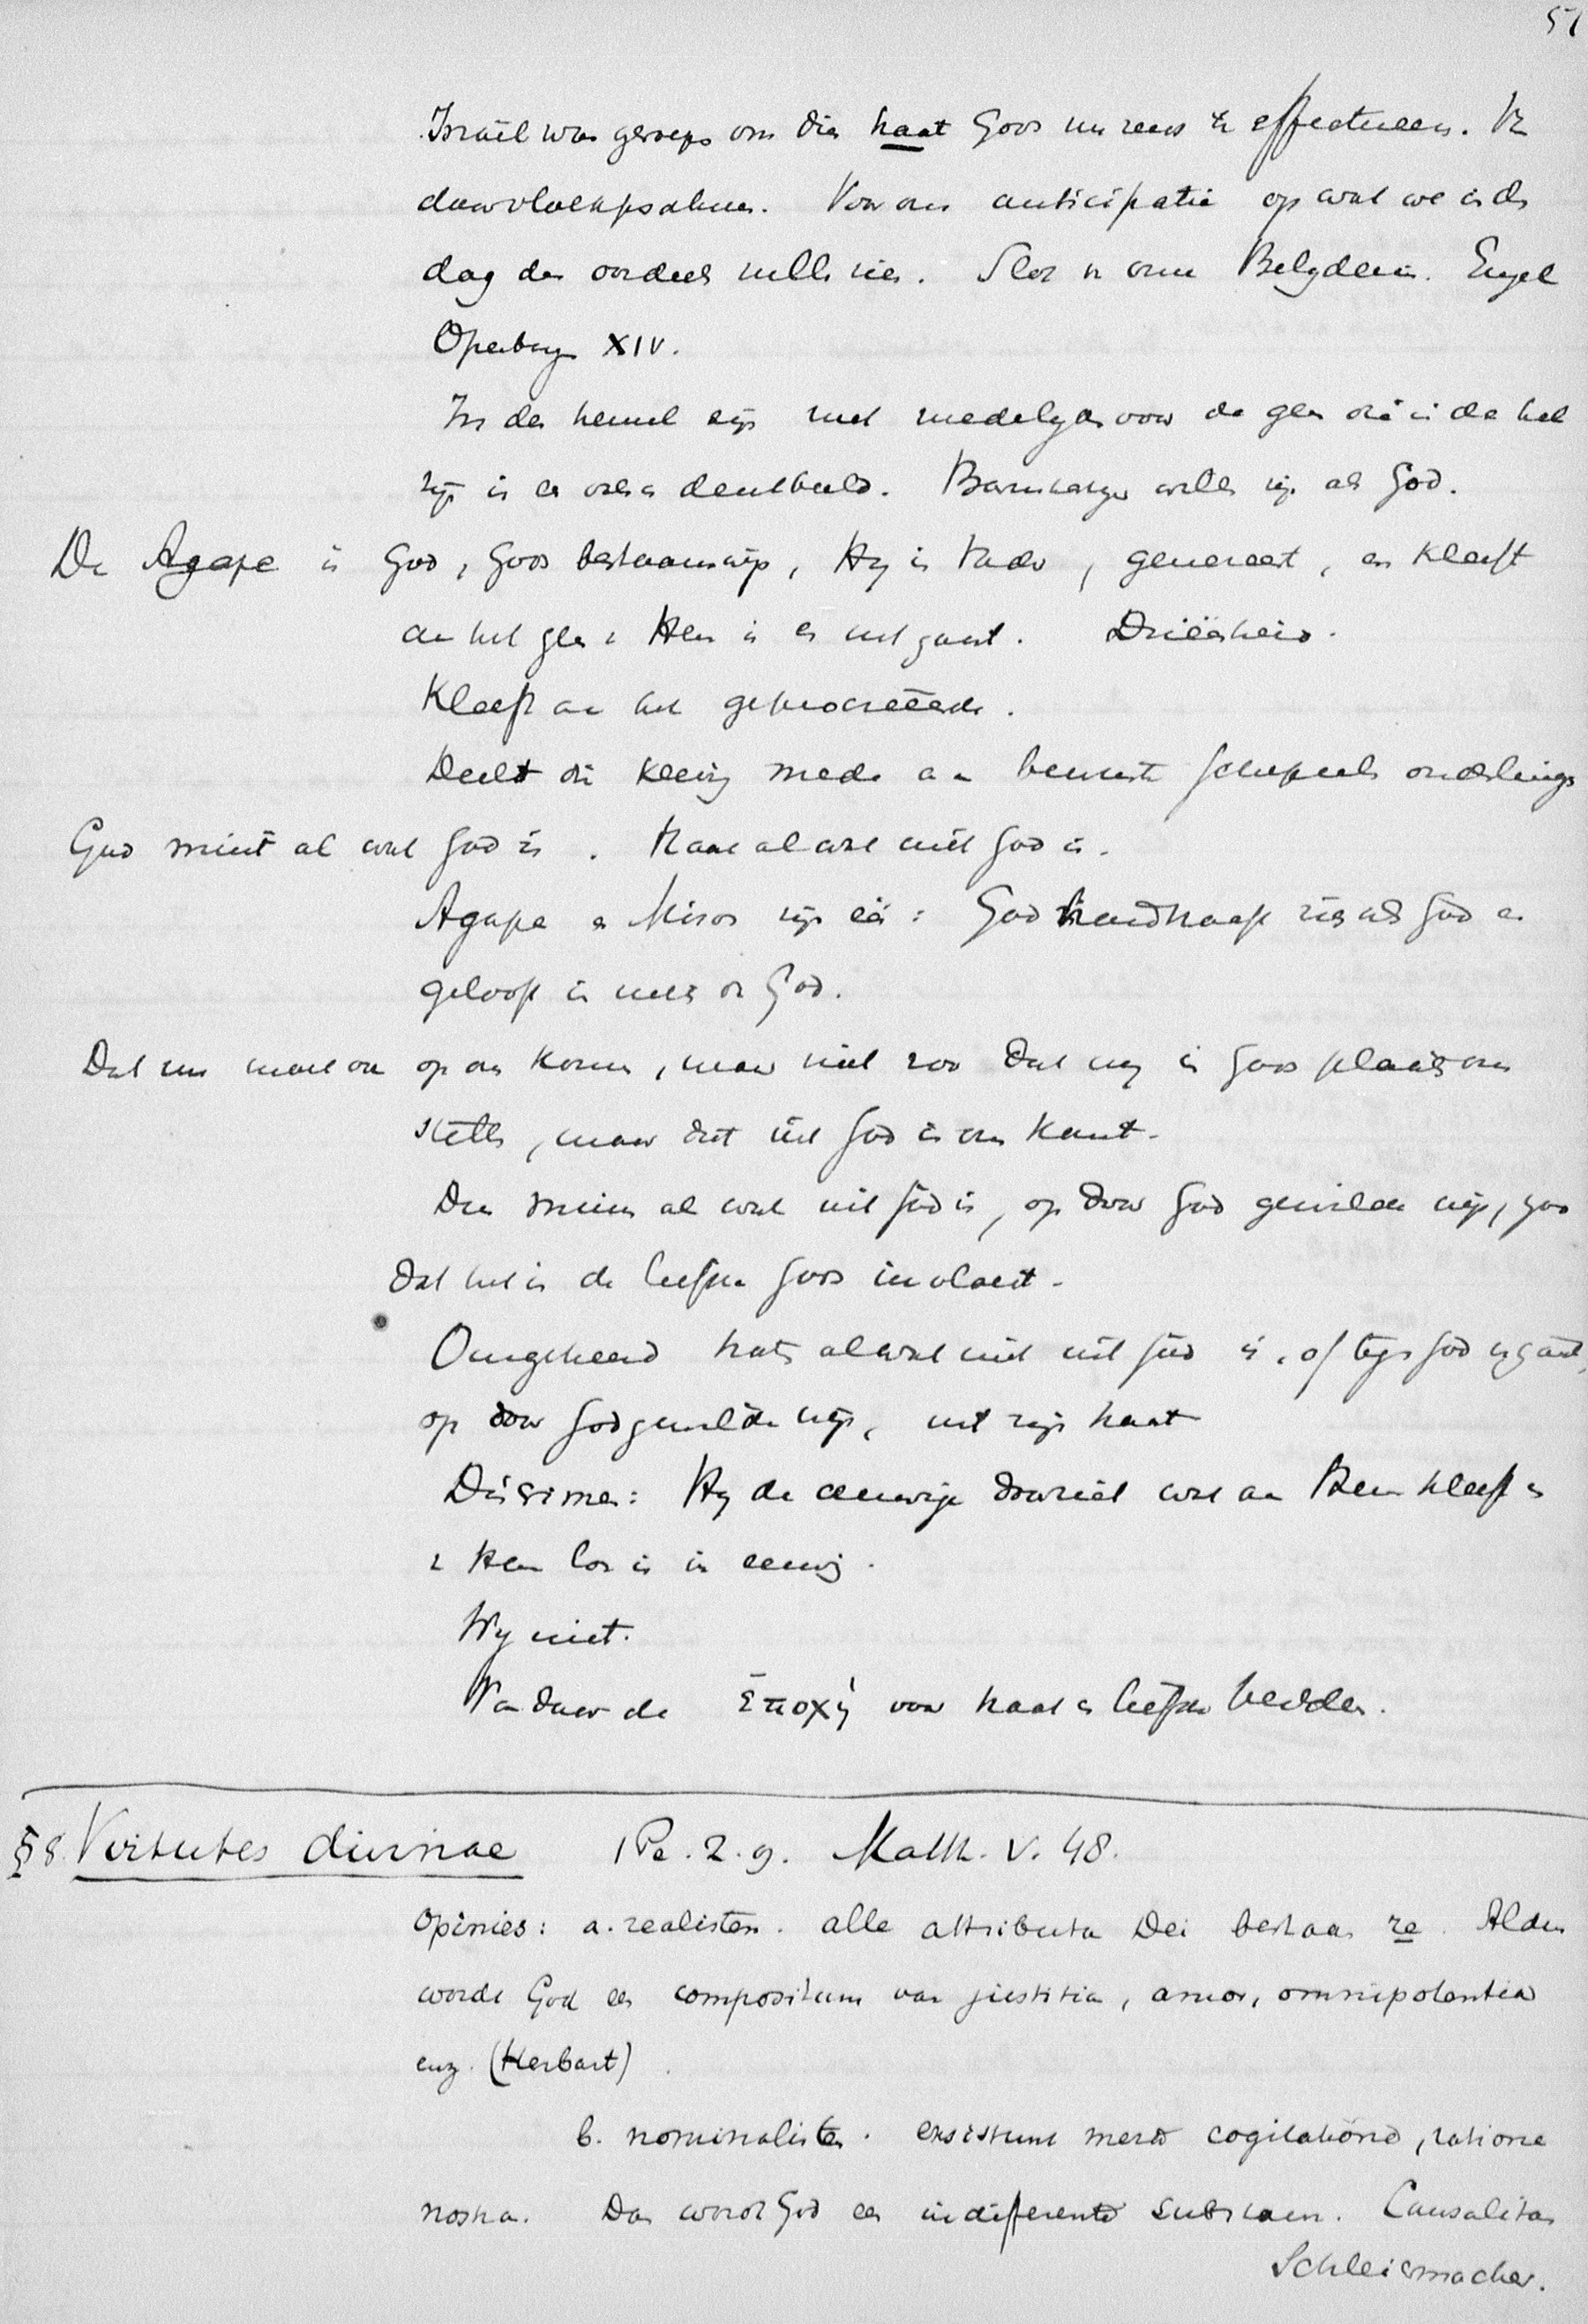 51
Israël was geroepen om dien haat Gods nu reeds te effectueeren. Vz
daarvloekpsalmen. Voor ons anticipatie op wat we in den
dag des oordeels zullen zien. Slot v. onze Belydenis. Engel
Openbaring XIV.
In den hemel zijn met medelyden voor de genen die in de hel
zijn is een ondenkbeeld. Barmhartiger willen zijn als God.
De Agape is God, Gods bestaanswijs, Hij is Vader, genereert, en kleeft
aan het geen v Hem is en uitgaat. Drieënheid.
Kleeft aan het geprocreëerde.
Deelt die kleving mede aan bewuste schepsels onderlings
God mint al wat God is. Haat al wat niet God is.
Agape en Misos zijn één: God handhaaft zich als God en
gelooft in niets dan God.
Dat nu moet ook op ons komen, maar niet zoo dat wij in Gods plaats ons
stellen, maar dat uit God in ons komt.
Dus minnen al wat uit God is, op door God gewilde wijs, zoo
dat het in de liefde Gods invloeit.
Omgekeerd haten al wat niet uit God is, of tegen God ingaat,
op door God gewilde wijs, met zijn haat
Discrimen: Hij de eeuwige doorziet wat aan Hem kleeft en
v Hem los is in eeuwig.
Wij niet.
Vandaar de ἐποχή voor haat en liefde beiden.
§8. Virtutes divinae 1 Pe. 2.9. Matth. V. 48.
Opinies: a. realisten. alle attributa Dei bestaan re. Aldus
wordt God een compositum van justitia, amor, omnipotentia
enz. (Herbart).
b. nominalisten. exsistunt mera cogitatione, ratione
nostra. Dan wordt God een indifferente substans. Causalitas
Schleiermacher.